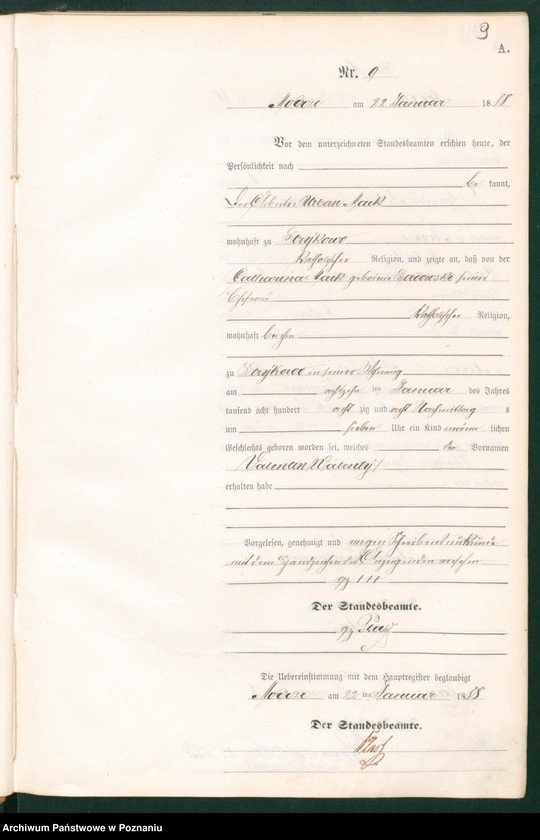 9
A.
Nr. 9
Modrze am 22 Januar 1888
Vor dem unterzeichneten Standesbeamten erschien heute, der
Persönlichkeit nach
be kannt,
der Arbeiter Urban Maik
wohnhaft zu Strykowo
katholischer Religion, und zeigte an, daß von der
Catharina Maik geborene seiner
Ehefrau
katholischer Religion,
wohnhaft bei ihm
zu Strykowo in seiner Wohnung
am achtzehn ten Januar des Jahres
tausend acht hundert acht zig und acht Nachmittag s
um sieben Uhr ein Kind männ lichen
Geschlechts geboren worden sei, welches den Vornamen
Valentin (Walenty)
erhalten habe
Vorgelesen, genehmigt und wegen Schreibensunkunde
mit dem Handzeichen des Anzeigenden versehen
gez +++
Der Standesbeamte.
gez
Die Uebereinstimmung mit dem Hauptregister beglaubigt
Modrze am 22 ten Januar 1888
Der Standesbeamte.
Archiwum Państwowe w Poznaniu